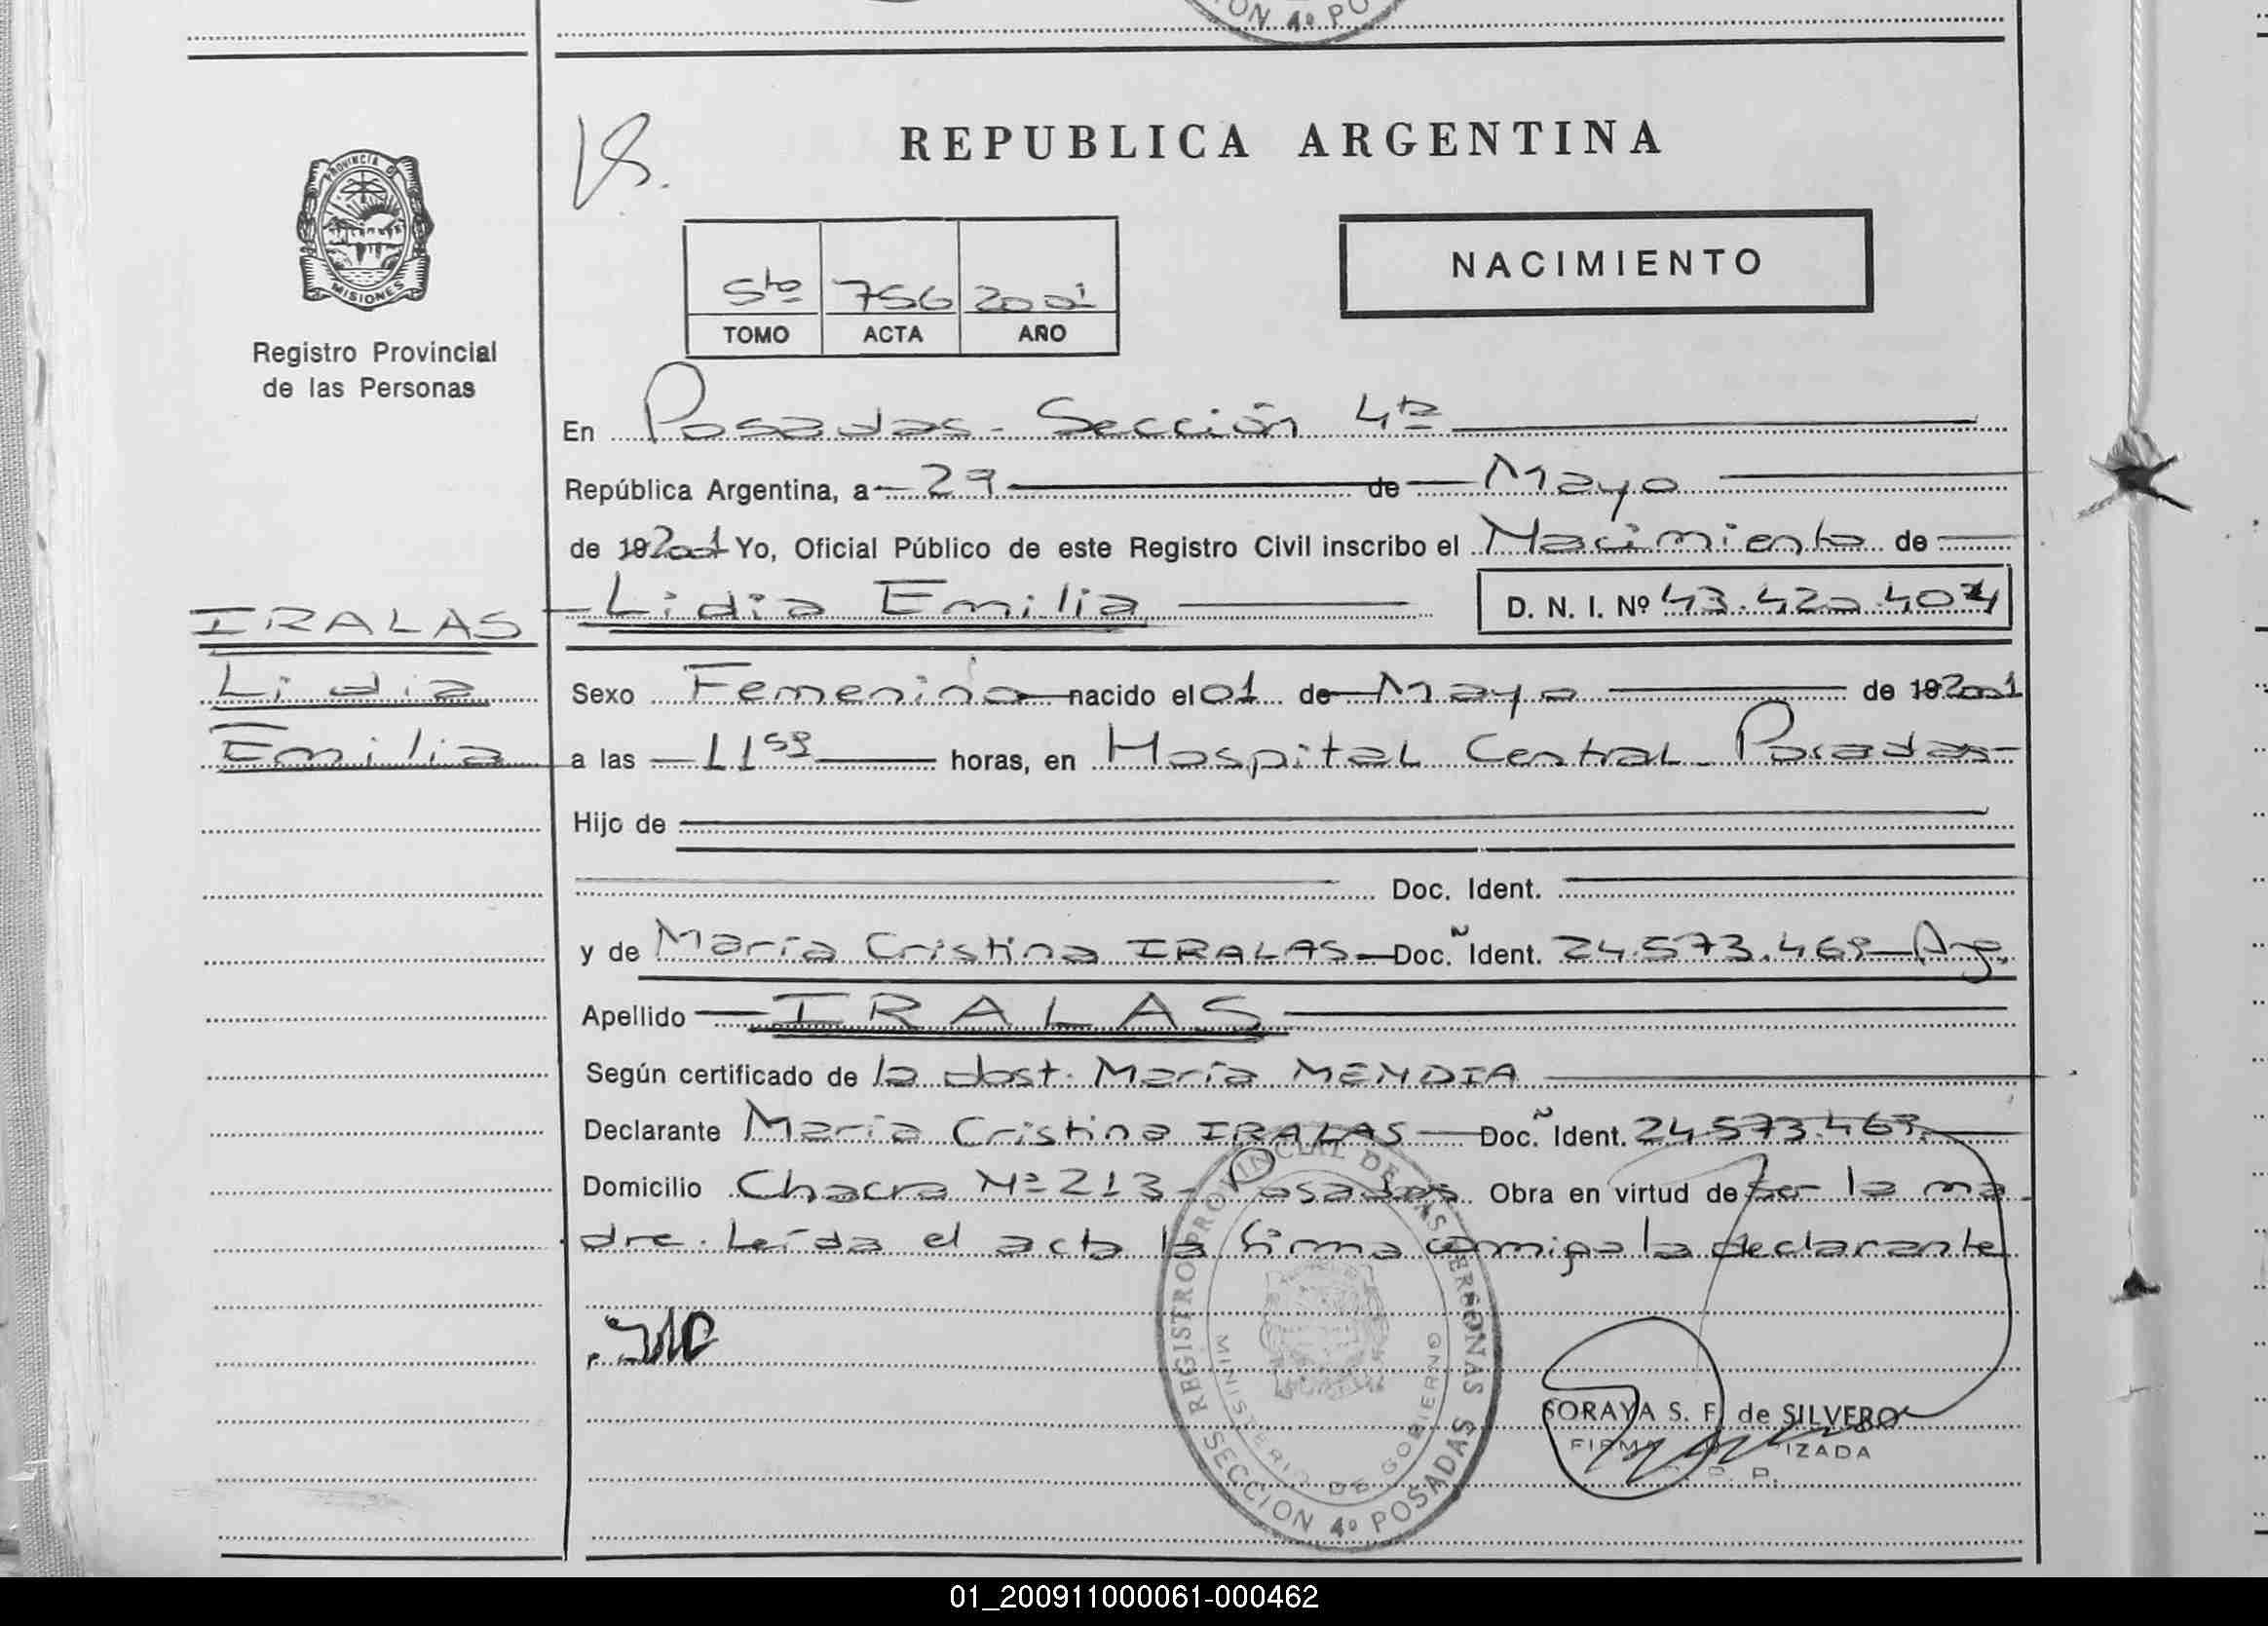 ON 4º PO
PROVINCIA D
MISIONES
Registro Provincial
de las Personas
REPUBLICA ARGENTINA
NACIMIENTO
5to 756 2001
TOMO ACTA AÑO
En Posadas - Sección 4ta
República Argentina, a 29 de Mayo
de 19 2001 Yo, Oficial Público de este Registro Civil inscribo el Nacimiento de
IRALAS
Lidia
Emilia
Lidia Emilia D. N. I. Nº 43.420.404
Sexo Femenino nacido el 01 de Mayo de 19 2001
a las 11 horas, en Hospital Central - Posadas-
Hijo de
Doc. Ident.
y de María Cristina IRALAS - Doc. Ident. 24.573.469 - Arg.
Apellido IRALAS
Según certificado de la obst. María MENDIA
Declarante María Cristina IRALAS - Doc. Ident. 24.573.469
Domicilio Chacra Nº 213 - Posadas Obra en virtud de ser la ma
dre. Leída el acta la firma conmigo la declarante
REGISTRO PROVINCIAL DE LAS PERSONAS
MINISTERIO DE GOBIERNO
SECCION 4º POSADAS
SORAYA S. F. de SILVERO
01_200911000061-000462